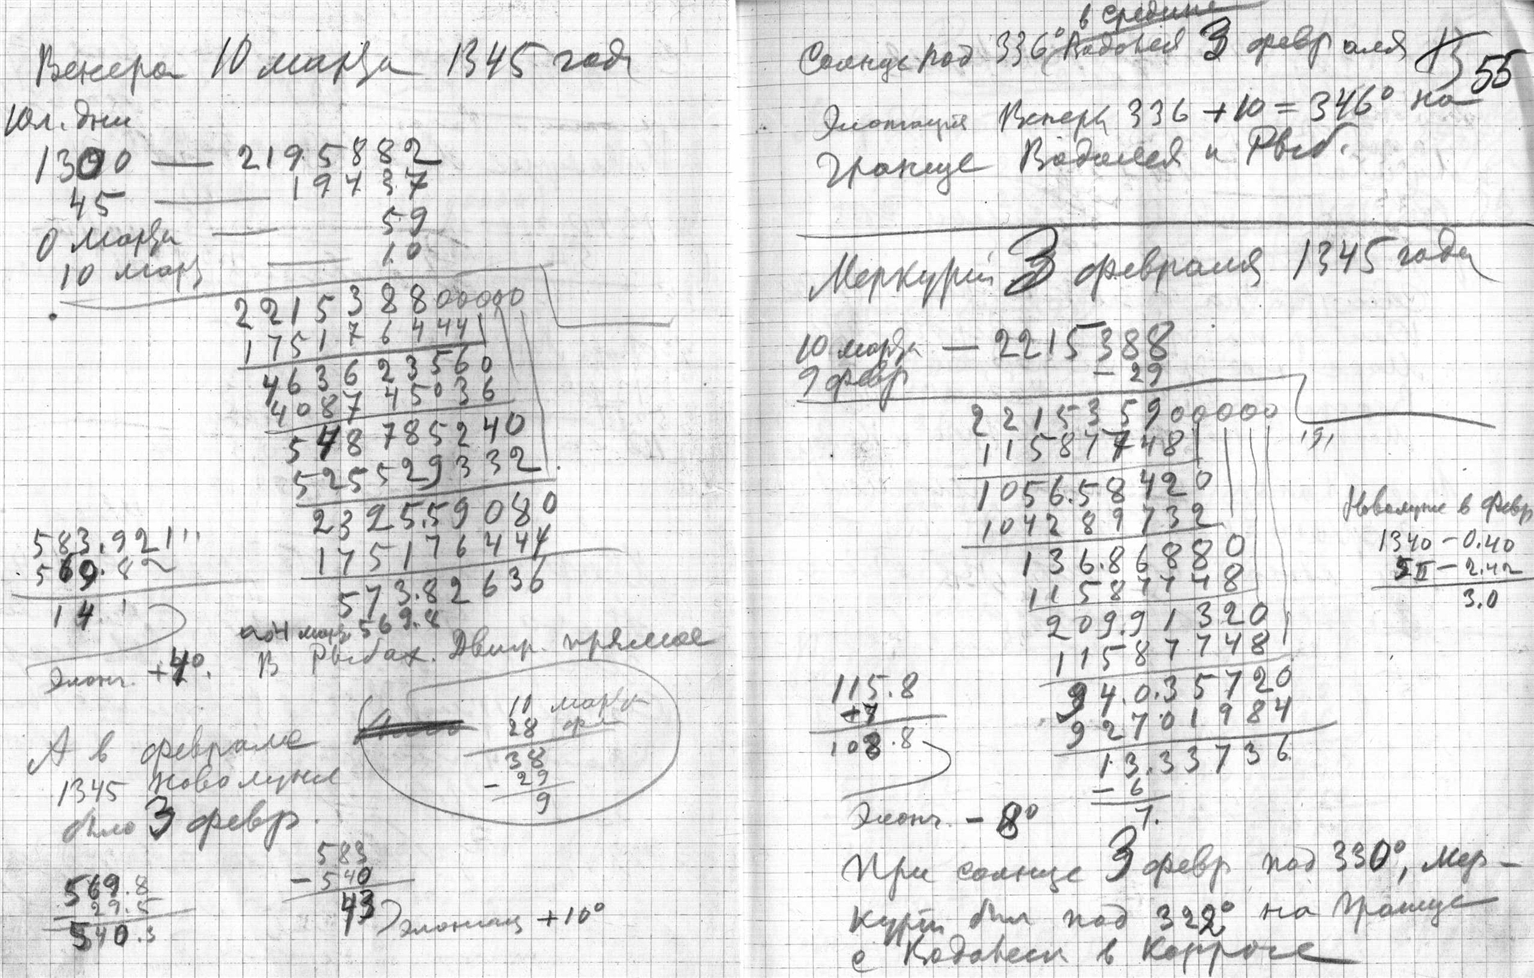 Венера 10 марта 1345 года
Юл. дни
1300 — 2195882
45 — 19737
0 марта — 59
10 март — 10
221538800000
175176444
463623560
408745036
5487785240
525529332
23255.9080
175176444
573.82636
569.8
583.921
569.82
14.1
Элонг. +4°.
В Рыбах. Движ. прямое
10 марта
28 фев
38
- 29
9
А в феврале
1345 новолуние
было 3 февр
569.8
29.5
540.3
583
- 540
43
Элонгац +10°
в средине
Солнце под 336° Водолея 3 февраля
55
Элонгация Венеры 336 + 10 = 346° на
границе Водолея и Рыб.
Меркурий 3 февраля 1345 года
10 марта — 2215388
9 февр — 29
221535900000
115877748
1056.58420
104289732
136.86880
115877748
209.91320
115877748
94.035720
92701984
13.33736
- 6
7.
Новолуние в Февр
1340 — 0.40
5 II — 2.42
3.0
115.8
+7
108.8
Элонг. - 8°
При солнце 3 февр под 330°, Мер-
курий был под 322° на границе
с Водолеем в Козероге